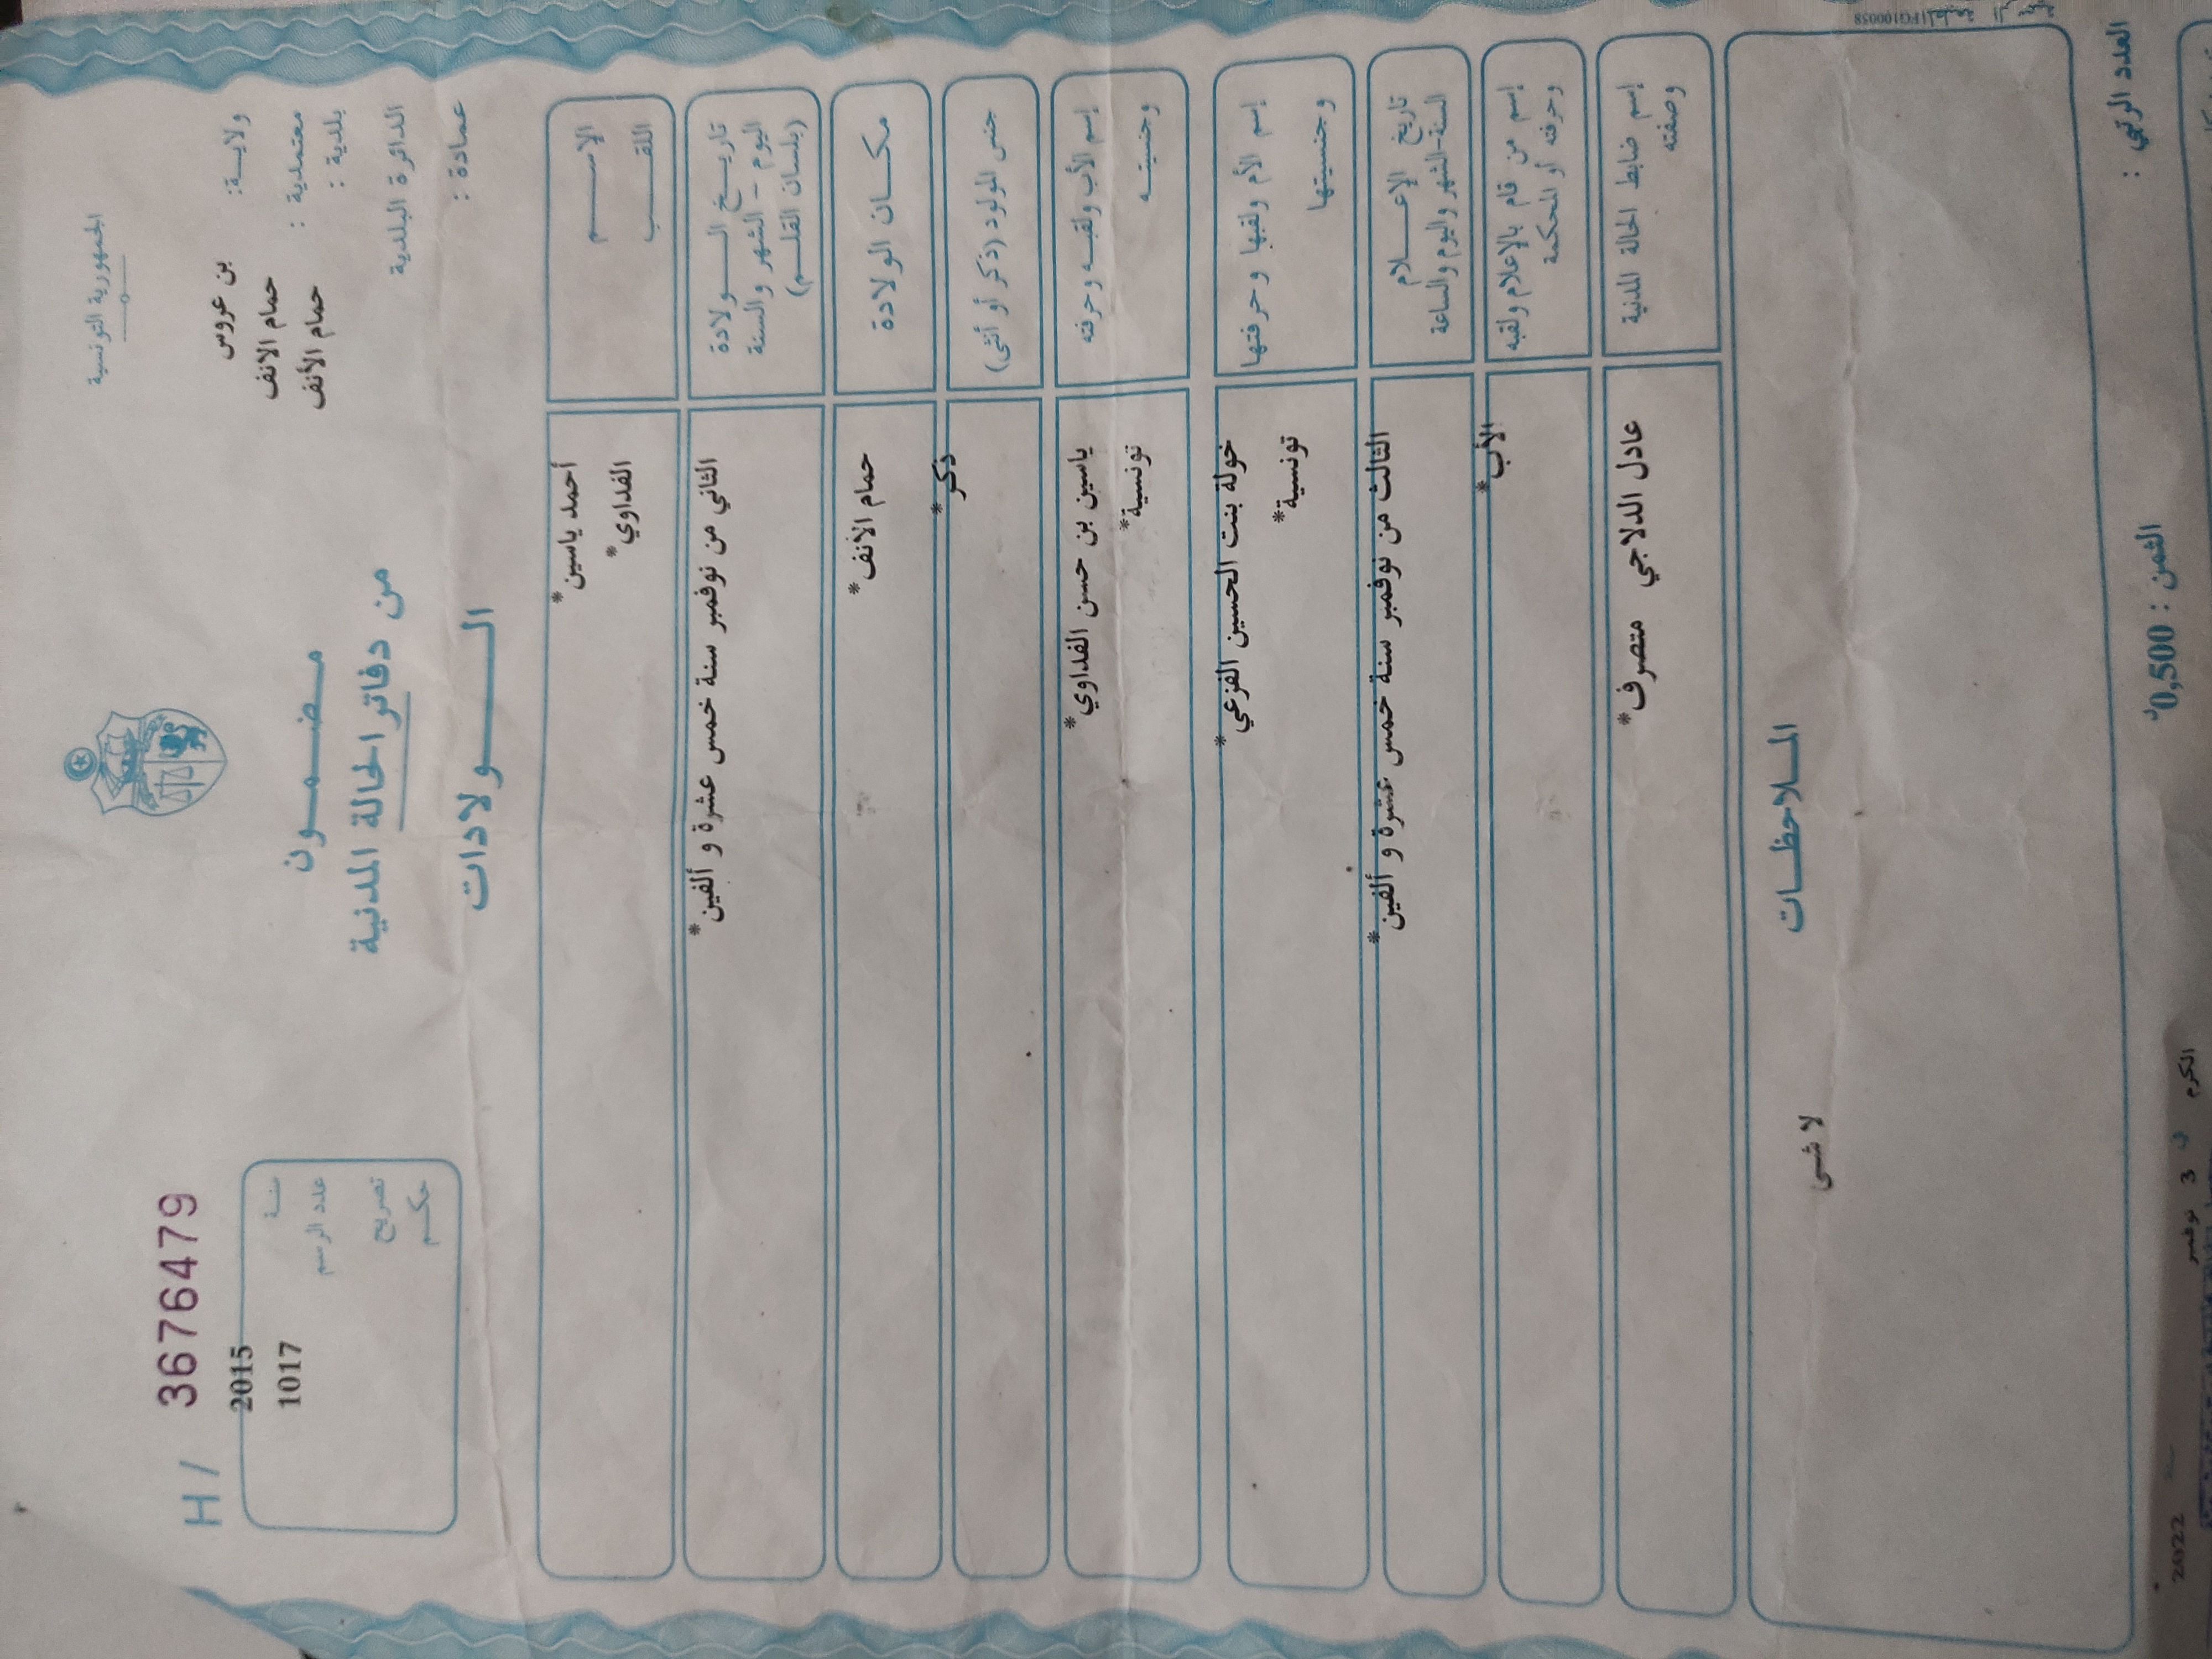 الجمهورية التونسية
H / 3676479
ولايـة: بن عروس
معتمدية : حمام الانف
بلدية : حمام الأنف
الدائرة البلدية
عمادة :
سنـة 2015
عدد الرسم 1017
تصريح
حكـم
مـضـمـون
من دفاتر الحالة المدنية
الـولادات
الإسـم أحمد ياسين*
اللقـب الفداوي*
تاريـخ الـولادة الثاني من نوفمبر سنة خمس عشرة و ألفين*
اليوم - الشهر والسنة
(بلسان القلـم)
مكـان الولادة حمام الأنف*
جنس المولود (ذكر أو أنثى) ذكر*
إسم الأب ولقبـه وحرفته ياسين بن حسن الفداوي*
وجنسيتـه تونسية*
إسم الأم ولقبها وحرفتها خولة بنت الحسين الفزعي*
وجنسيتها تونسية*
تاريخ الإعـلام الثالث من نوفمبر سنة خمس عشرة و ألفين*
السنة-الشهر واليوم والساعة
إسم من قام بالإعلام ولقبه الأب*
وحرفته أو المحكمة
إسم ضابط الحالة المدنية عادل الدلاجي متصرف*
وصفته
المـلاحظـات
لا شى
العدد الرتبي :
الثمن : 0,500د
الكرم في 3 نوفمبر 2022